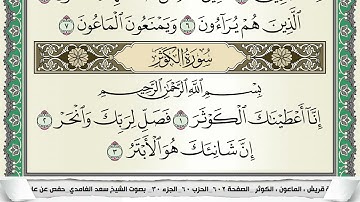 الَّذِينَ هُمْ يُرَاءُونَ ٦ وَيَمْنَعُونَ الْمَاعُونَ ٧
سُورَةُ الْكَوْثَرِ
بِسْمِ اللَّهِ الرَّحْمَٰنِ الرَّحِيمِ
إِنَّا أَعْطَيْنَاكَ الْكَوْثَرَ ١ فَصَلِّ لِرَبِّكَ وَانْحَرْ ٢
إِنَّ شَانِئَكَ هُوَ الْأَبْتَرُ ٣
قريش ، الماعون ، الكوثر الصفحة ٦٠٢ الحزب ٦٠ الجزء ٣٠ بصوت الشيخ سعد الغامدي حفص عن عا